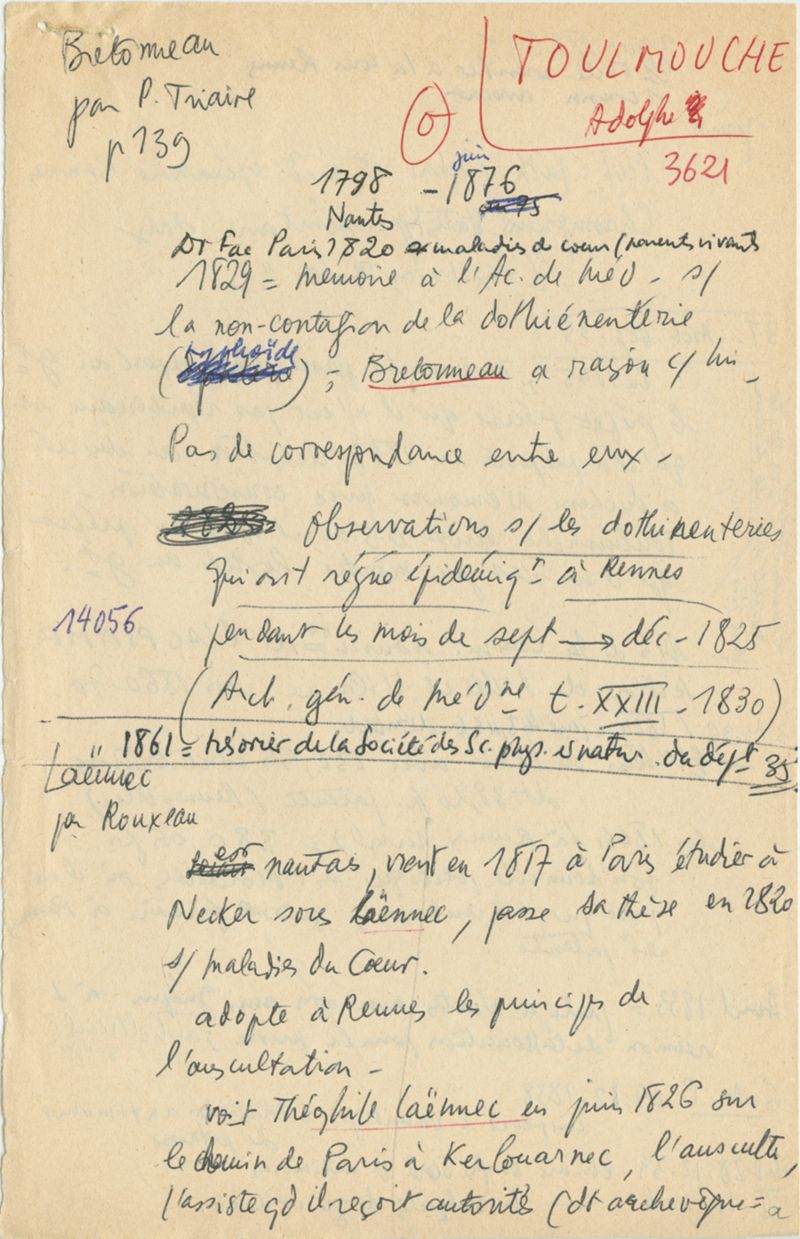 Bretonneau
par P. Triaire
p 139
TOULMOUCHE
Adolphe
3621
1798 - juin 1876
Nantes
Dr Fac Paris 1820 maladies de coeur (parents vivants
1829 = mémoire à l'Ac. de méd - s/
la non-contagion de la dothiénenterie
(typhoïde) ; Bretonneau a raison c/ lui -
Pas de correspondance entre eux -
Observations s/ les dothinenteries
qui ont régné épidémiqt à Rennes
14056
pendant les mois de sept → déc - 1825
(Arch. gén. de médne t. XXIII - 1830)
1861 = trésorier de la Société des Sc. phys. et natur. du dépt 35
Laënnec
par Rouxeau
est nantais, vient en 1817 à Paris étudier à
Necker sous Laënnec, passe sa thèse en 1820
s/ maladies du Cœur.
adopte à Rennes les principes de
l'auscultation -
voit Théophile Laënnec en juin 1826 sur
le chemin de Paris à Kerlouarnec, l'ausculte,
l'assiste qd il reçoit autorités (dt archevêque = a